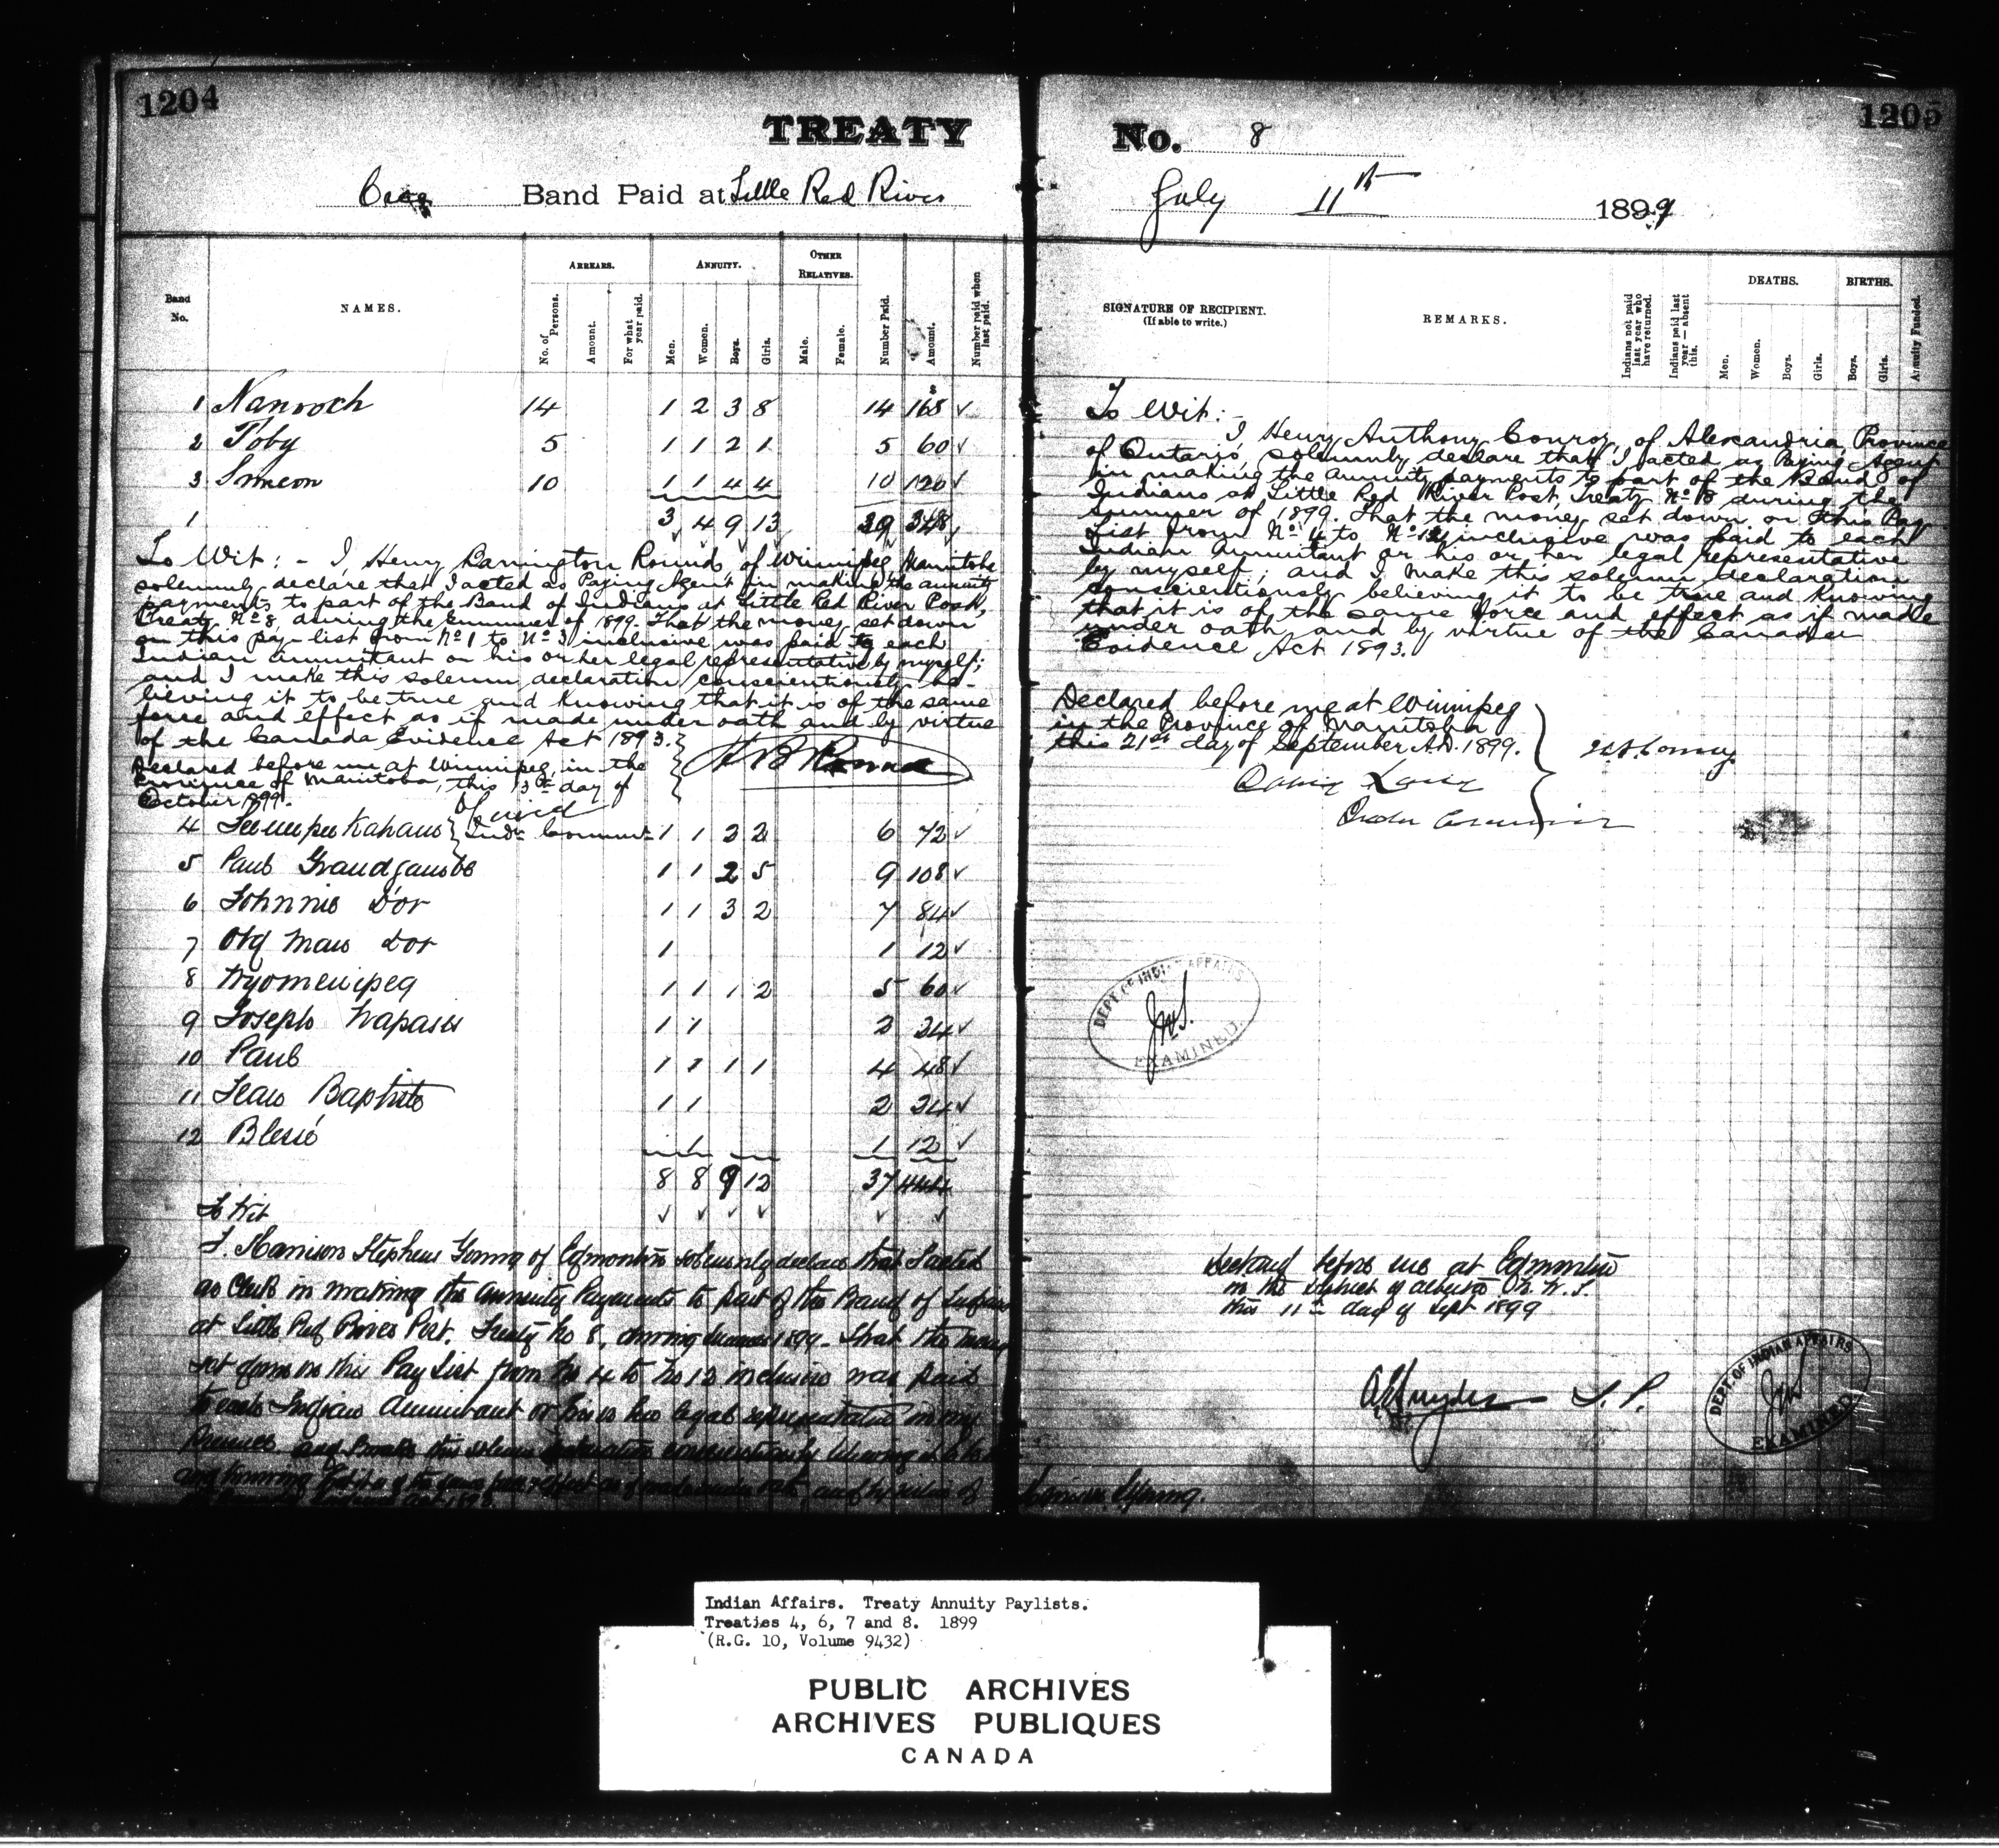 1204
TREATY
Cree Band Paid at Little Red River
Band No.
NAMES.
ARREARS.
No. of Persons.
Amount.
For what year paid.
ANNUITY.
Men.
Women.
Boys.
Girls.
OTHER RELATIVES.
Male.
Female.
Number Paid.
Amount.
Number paid when last paid.
1 Nanooch 14 1 2 3 8 14 168 ✓
2 Toby 5 1 1 2 1 5 60 ✓
3 Simeon 10 1 1 4 4 10 120 ✓
1 3 4 9 13 29 348
To Wit: - I, Henry Barrington Round, of Winnipeg, Manitoba
solemnly declare that I acted as Paying Agent in making the annuity
payments to part of the Band of Indians at Little Red River Post,
Treaty No 8, during the summer of 1899. That the money set down
on this pay-list from No 1 to No 3 inclusive was paid to each
Indian annuitant or his or her legal representative by myself;
and I make this solemn declaration conscientiously be-
lieving it to be true and knowing that it is of the same
force and effect as if made under oath and by virtue
of the Canada Evidence Act 1893.
Declared before me at Winnipeg, in the
Province of Manitoba, this 13th day of
October 1899.
H B Round
4 Indn. 1 1 2 2 6 72 ✓
5 Paul Grandjambe 1 1 2 5 9 108 ✓
6 Johnnie D'or 1 1 3 2 7 84 ✓
7 Old Man Dor 1 1 12 ✓
8 1 1 1 2 5 60 ✓
9 Joseph 1 1 2 24 ✓
10 Paul 1 1 1 1 4 48 ✓
11 Jean Baptiste 1 1 2 24 ✓
12 1 1 12 ✓
8 8 9 12 37 444
To Wit ✓ ✓ ✓ ✓ ✓ ✓
I, Harrison Stephens Young of Edmonton solemnly declare that I acted
as Clerk in making the Annuity Payments to part of the Band of Indians
at Little Red River Post. Treaty No 8, during Summer 1899. That the money
set down on this Pay List from No 4 to No 12 inclusive was paid
to each Indian Annuitant or his or her legal representative in my
presence and I make this solemn declaration conscientiously believing it to be
and knowing that it is of the same force & effect as if made under oath, and by virtue of
1205
No. 8
July 11th 1899
SIGNATURE OF RECIPIENT.
(If able to write.)
REMARKS.
Indians not paid last year who have returned.
Indians paid last year — absent this.
DEATHS.
Men.
Women.
Boys.
Girls.
BIRTHS.
Boys.
Girls.
Annuity Funded.
To Wit:-
I, Henry Anthony Conroy, of Alexandria, Province
of Ontario, solemnly declare that I acted as Paying Agent
in making the annuity payments to part of the Band of
Indians at Little Red River Post, Treaty No 8 during the
summer of 1899. That the money set down on this Pay
List from No 4 to No 12 inclusive was paid to each
Indian Annuitant or his or her legal representative
by myself; and I make this solemn declaration
conscientiously believing it to be true and knowing
that it is of the same force and effect as if made
under oath and by virtue of the Canada
Evidence Act 1893.
Declared before me at Winnipeg
in the Province of Manitoba
this 21st day of September A.D. 1899.
H.A. Conroy
David Laird
DEPT OF INDIAN AFFAIRS
EXAMINED.
Declared before me at Edmonton
in the District of Alberta N. W. T.
this 11th day of Sept 1899
J. P.
DEPT. OF INDIAN AFFAIRS
EXAMINED
Young.
Indian Affairs. Treaty Annuity Paylists.
Treaties 4, 6, 7 and 8. 1899
(R.G. 10, Volume 9432)
PUBLIC ARCHIVES
ARCHIVES PUBLIQUES
CANADA